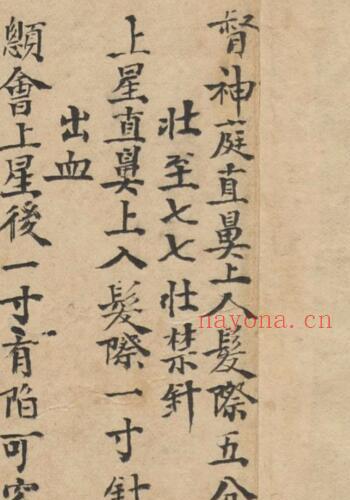 督神庭直鼻上入髮際五分
壯至七七壯禁針
上星直鼻上入髮際一寸針
出血
顖會上星後一寸有陷可容
nayona.cn